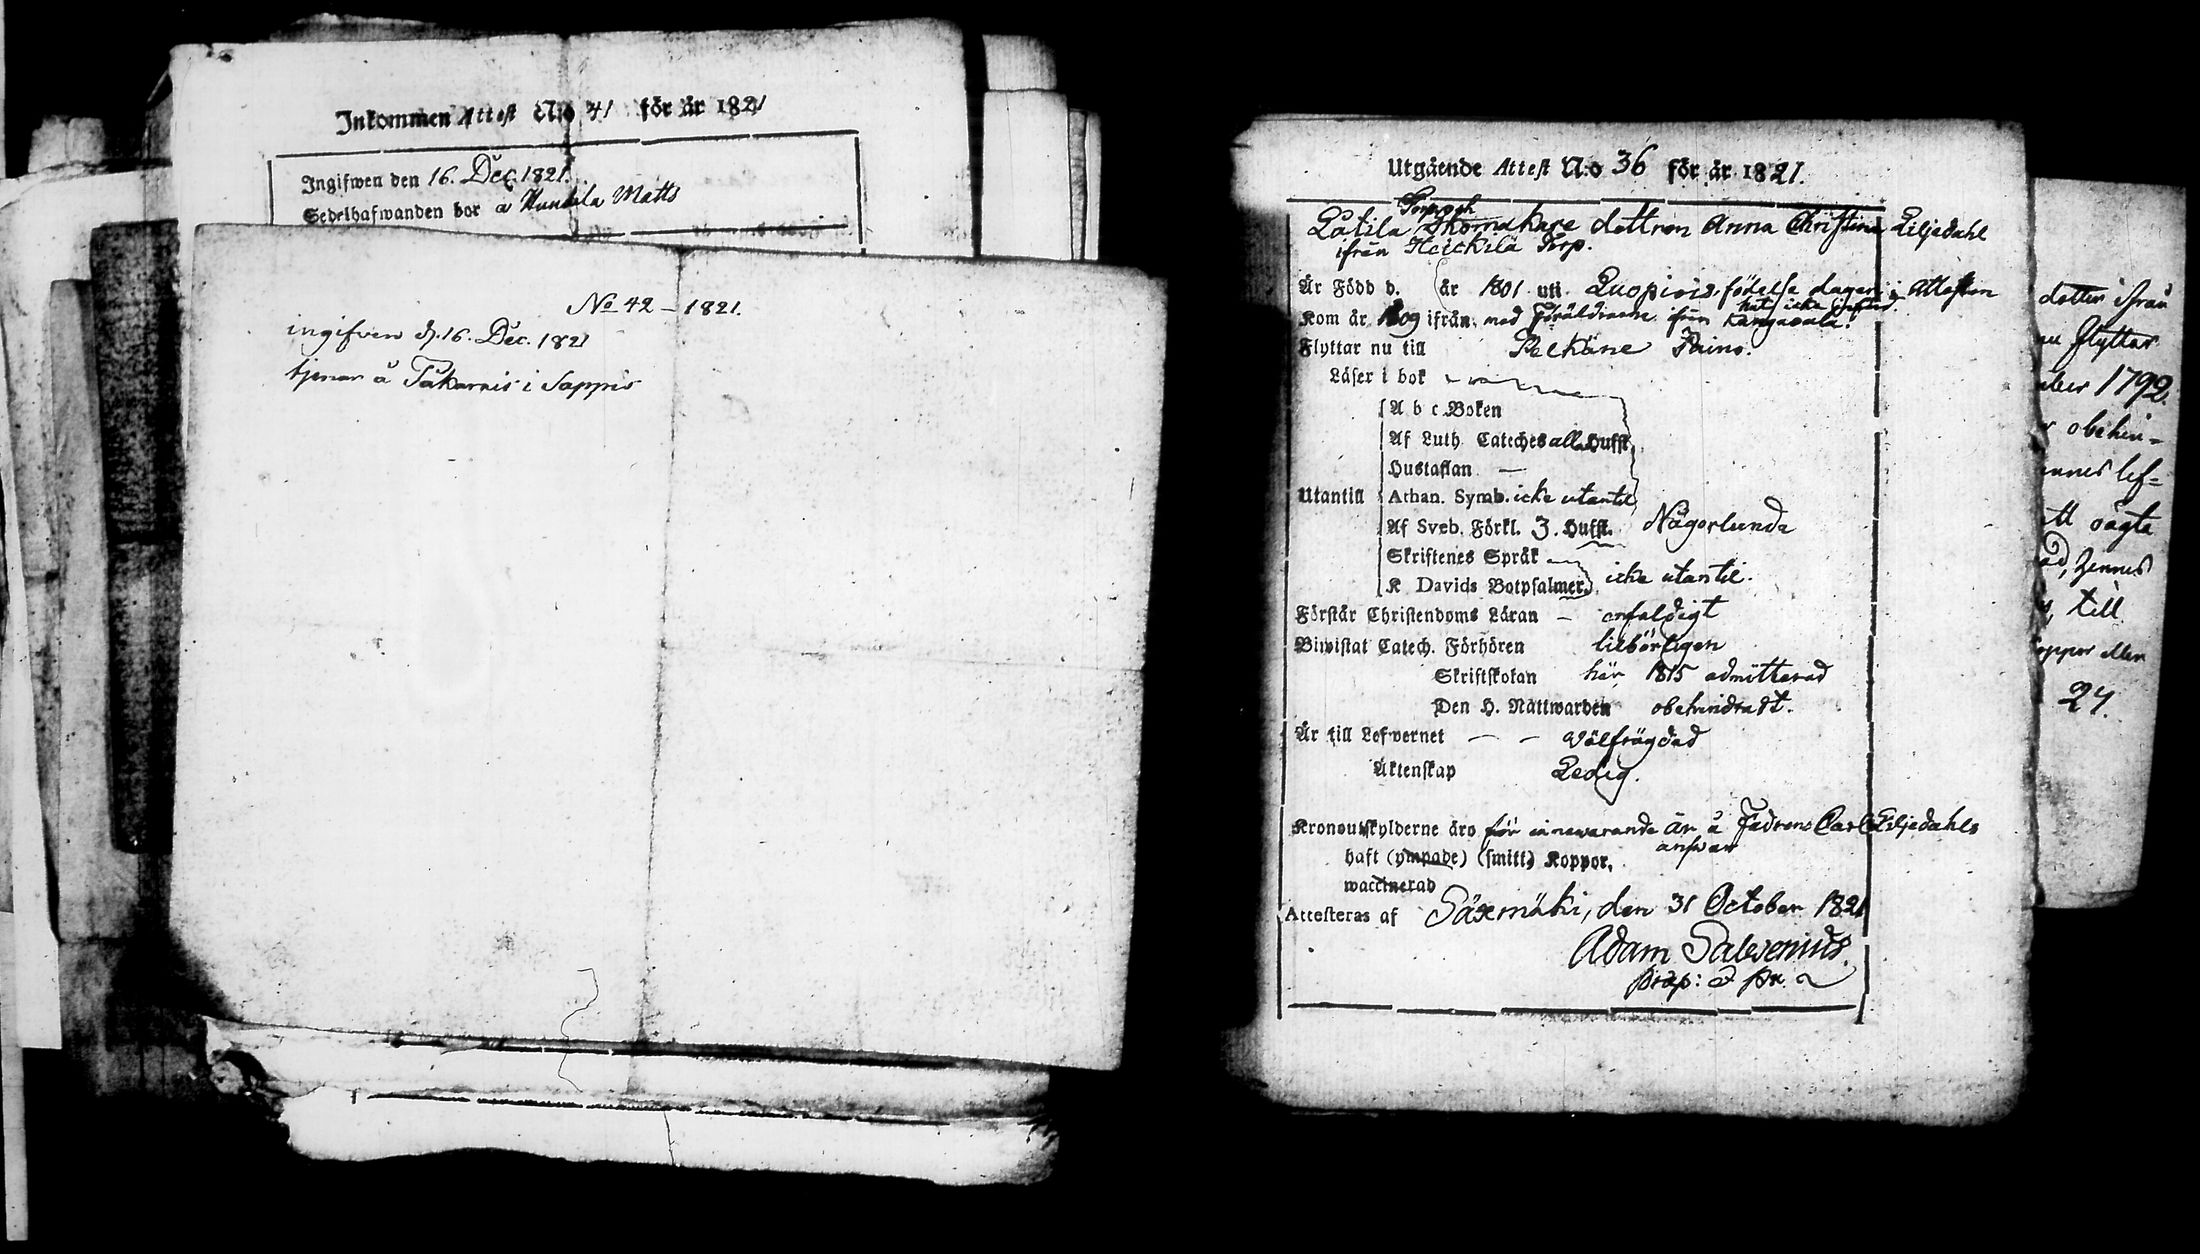 Inkommen Attest N:o 41 för år 1821
Ingifwen den 16. Dec. 1821.
Sedelhafwanden bor å Matts
No 42 – 1821.
ingifven d. 16. Dec. 1821
tjenar å i Sappis
Utgående Attest N:o 36 för år 1821.
Torp och
Latila Skomakare dottren Anna Christina Liljedahl
ifrån Heickilä Torp.
Är Född d. år 1801 uti Luopiois. födelse dagen i Attesten
har icke
Kom år 1809 ifrån med Föräldrarne ifrån Kangasala.
Flyttar nu till Pelkäne
Läser i bok
A b c Boken
Af Luth. Cateches alla Hufst.
Hustaflan —
Utantill Athan. Symb. icke utantil
Af Sveb. Förkl. 3. Hufst. Någorlunda
Skriftenes Språk
K Davids Botpsalmer. icke utantil.
Förstår Christendoms Läran — enfaldigt
Biwistat Catech. Förhören tilbörligen
Skriftskolan här 1815 admitterad
Den H. Nattwarden obehindradt.
Är till Lefvernet — — välfrägdad
Äktenskap Ledig.
Kronoutskylderne äro för innewarande år å Fadrens Carl Liljedahls
answar
haft (ympade) (smitt) Koppor,
waccinerad
Attesteras af Säxmäki, den 31 October 1821
Adam Salvenius.
prap: & pr.
dotter ifrån
nu flyttar
1792.
obehin-
lef-
ägta
till
eller
24.